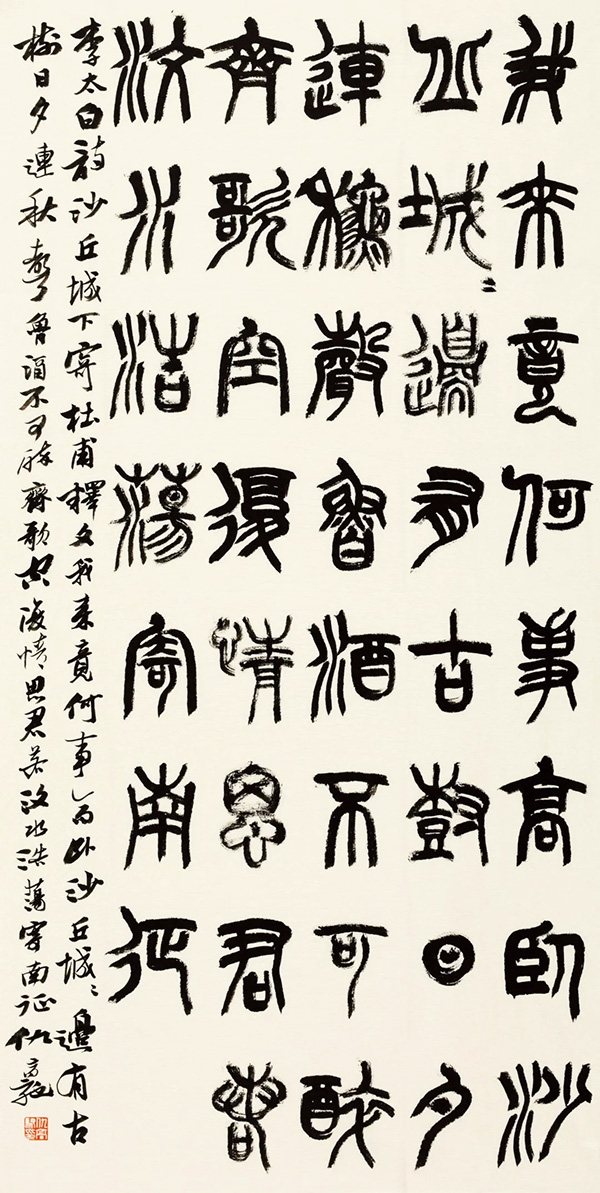 我來竟何事高卧沙
丘城〻邊有古樹日夕
連秋聲魯酒不可醉
齊歌空復情思君若
汶水浩蕩寄南征
李太白詩沙丘城下寄杜甫釋文我來竟何事高卧沙丘城〻邊有古
樹日夕連秋聲魯酒不可醉齊歌空復情思君若汶水浩蕩寄南征仇